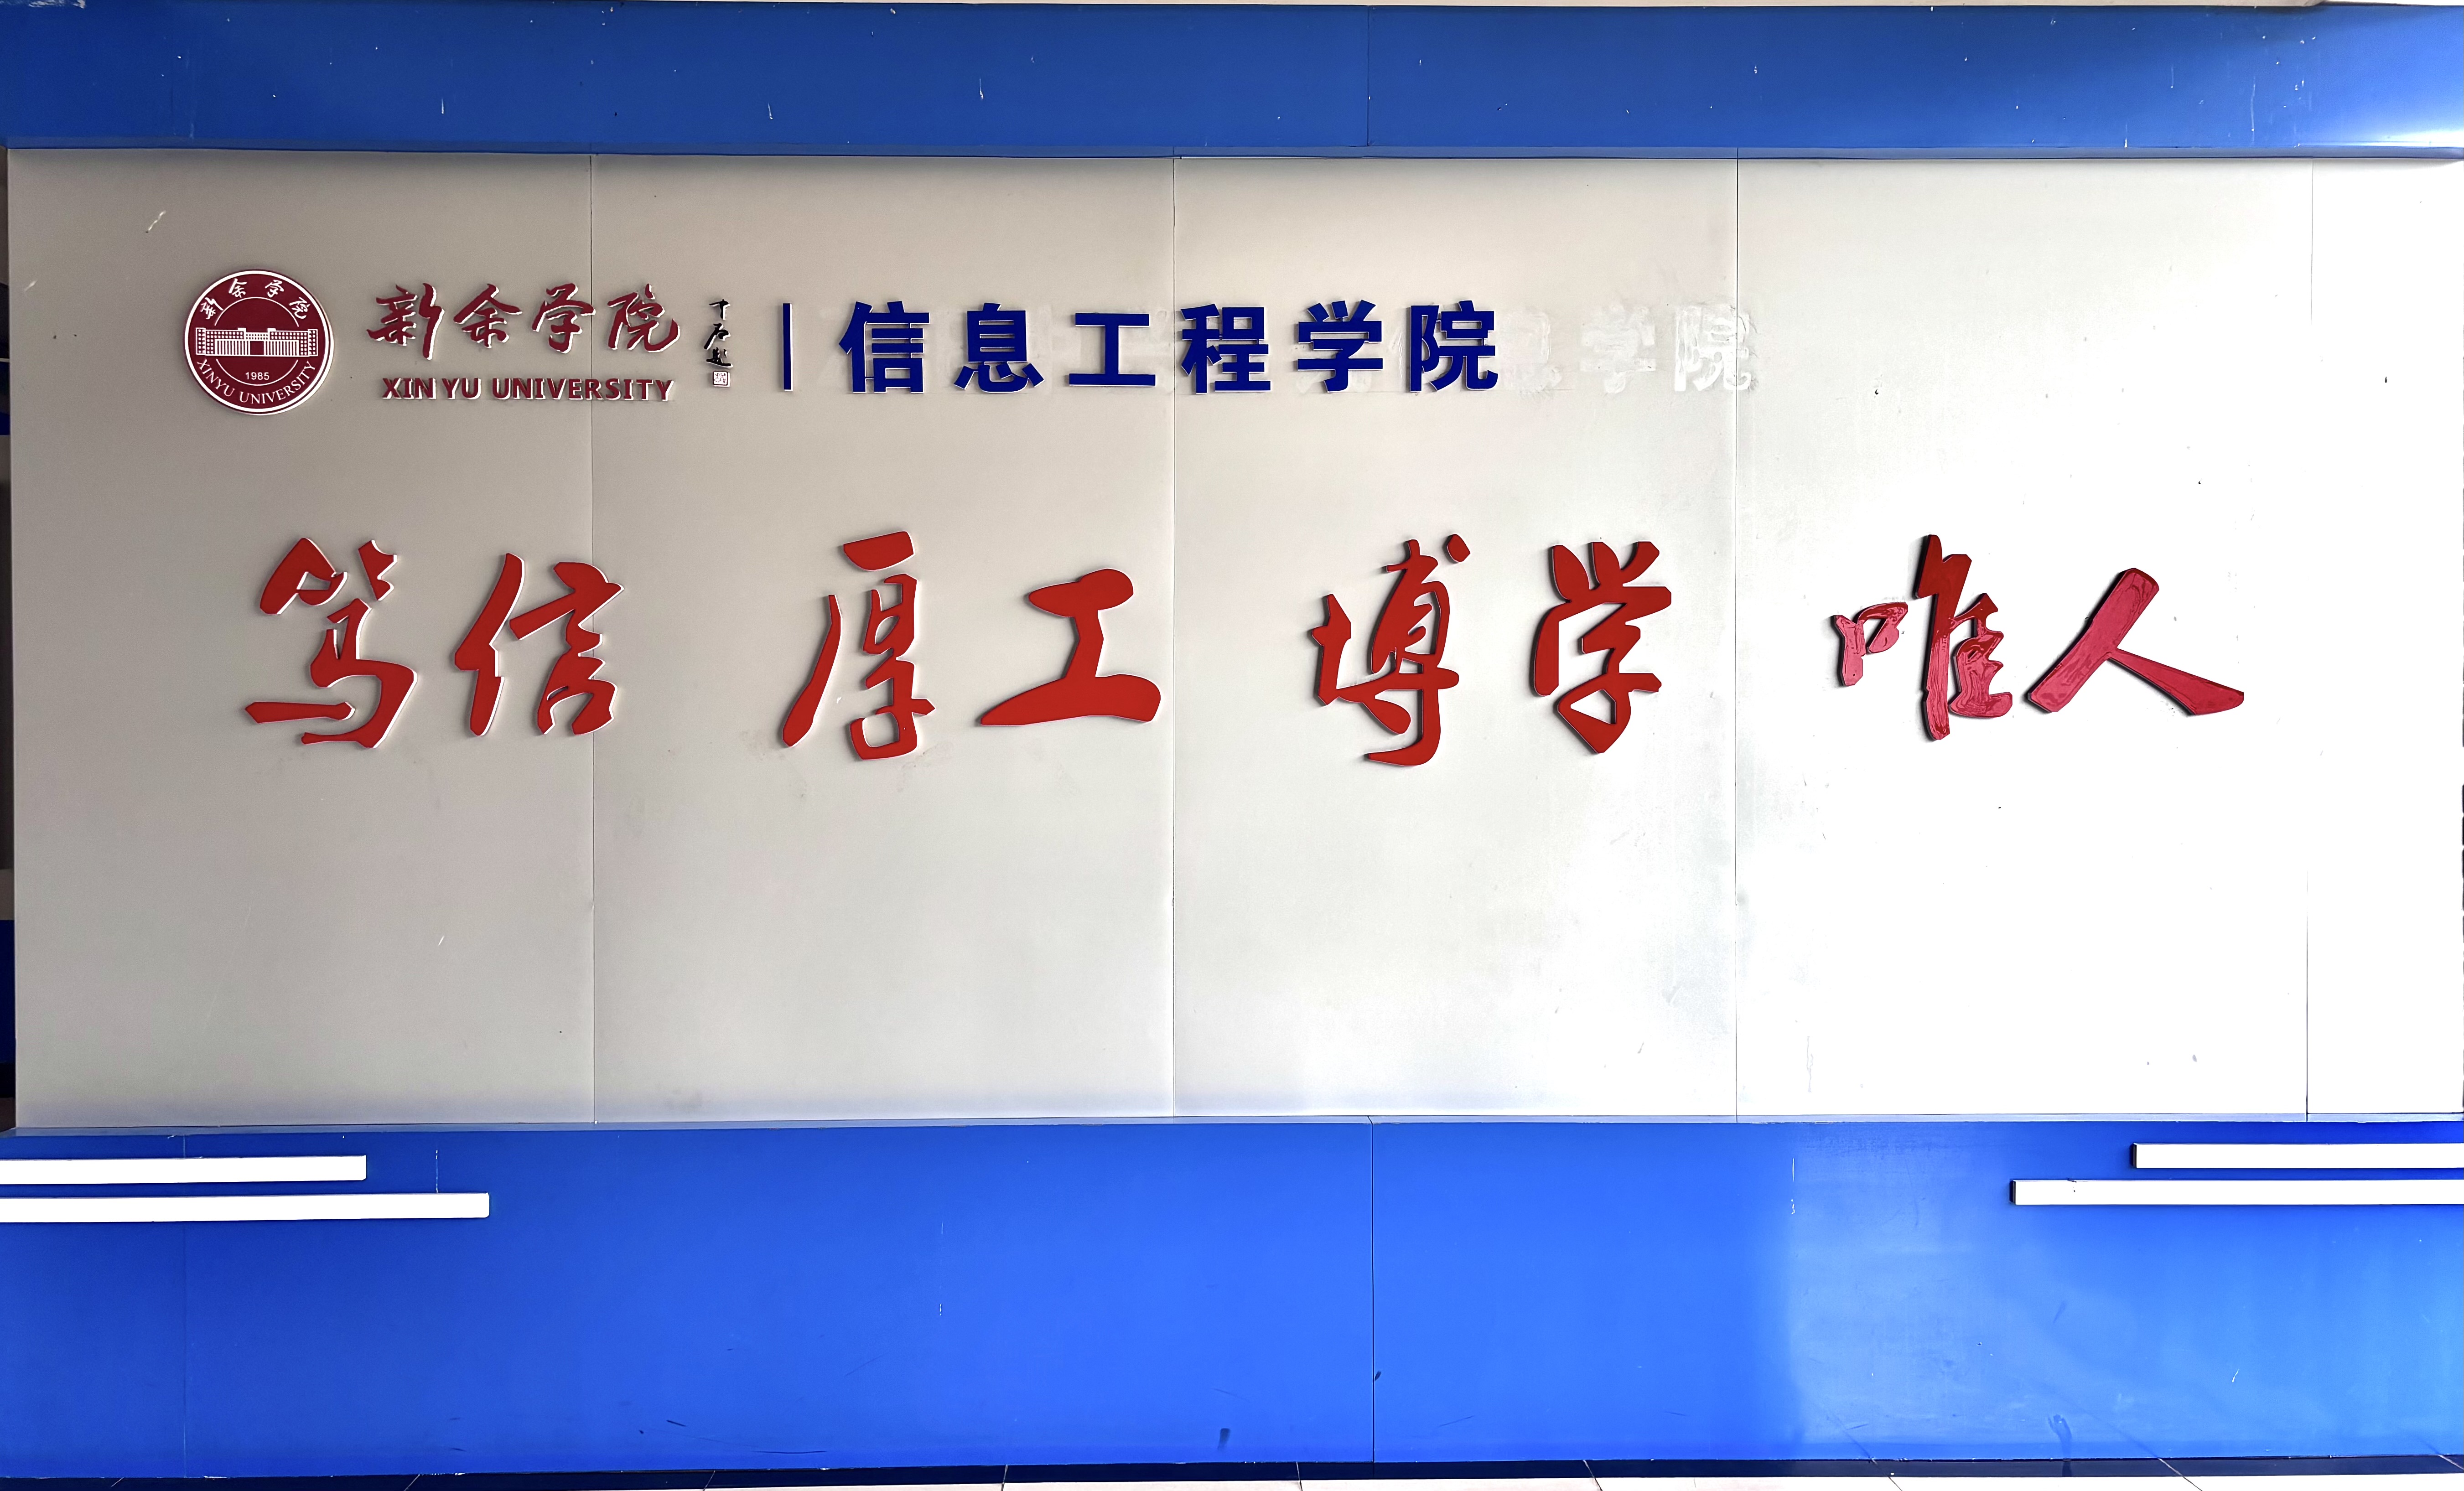 新余学院
1985
XINYU UNIVERSITY
新余学院
XIN YU UNIVERSITY
信息工程学院
息学院
笃信 厚工 博学 唯人